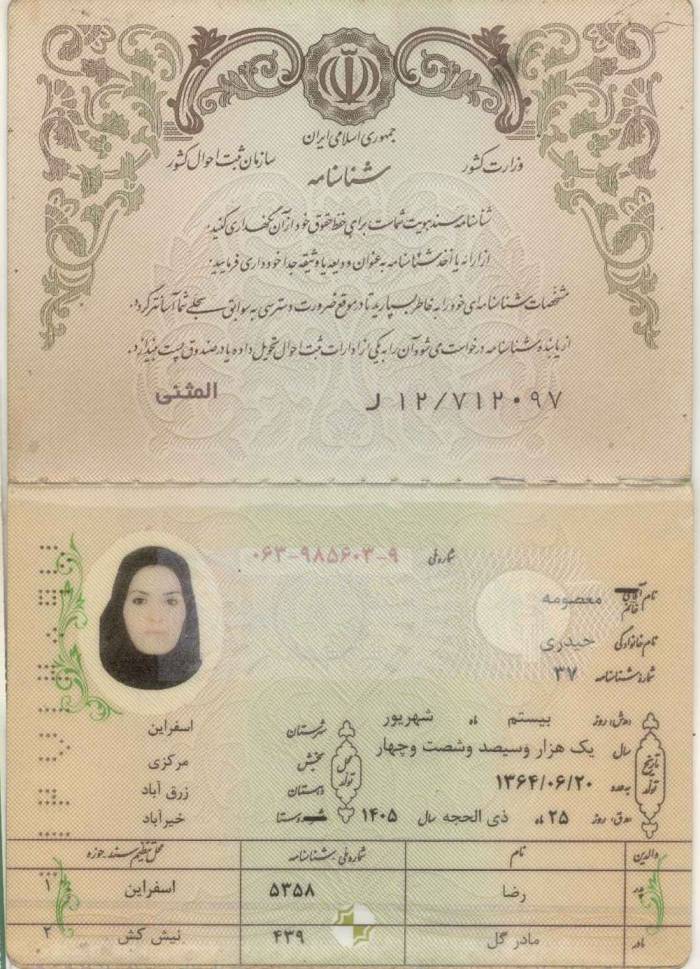 جمهوری اسلامی ایران
وزارت کشور
سازمان ثبت احوال کشور
شناسنامه
شناسنامه سند هویت شماست برای حفظ حقوق خود از آن نگهداری کنید.
از ارائه یا اخذ شناسنامه به عنوان ودیعه یا وثیقه جدا خودداری فرمایید.
مشخصات شناسنامه‌ای خود را به خاطر بسپارید تا در موقع ضرورت دسترسی به سوابق سجلی شما آسانتر گردد.
از یابنده شناسنامه درخواست می‌شود آن را به یکی از ادارات ثبت احوال تحویل داده یا در صندوق پست بیندازد.
ل ۱۲/۷۱۲۰۹۷
المثنی
شماره ملی ۰۶۳-۹۸۵۶۰۳-۹
نام آقای خانم معصومه
نام خانوادگی حیدری
شماره شناسنامه ۳۷
تاریخ تولد
(ه‍.ش) روز بیستم ماه شهریور
سال یک هزار وسیصد وشصت وچهار
به عدد ۱۳۶۴/۰۶/۲۰
(ه‍.ق) روز ۲۵ ماه ذی الحجه سال ۱۴۰۵
محل تولد
شهرستان اسفراین
بخش مرکزی
دهستان زرق آباد
شهر روستا خیرآباد
والدین نام شماره ملی/شناسنامه محل تنظیم سند حوزه
پدر رضا ۵۳۵۸ اسفراین ۱
مادر مادر گل ۴۳۹ نیش کش ۲